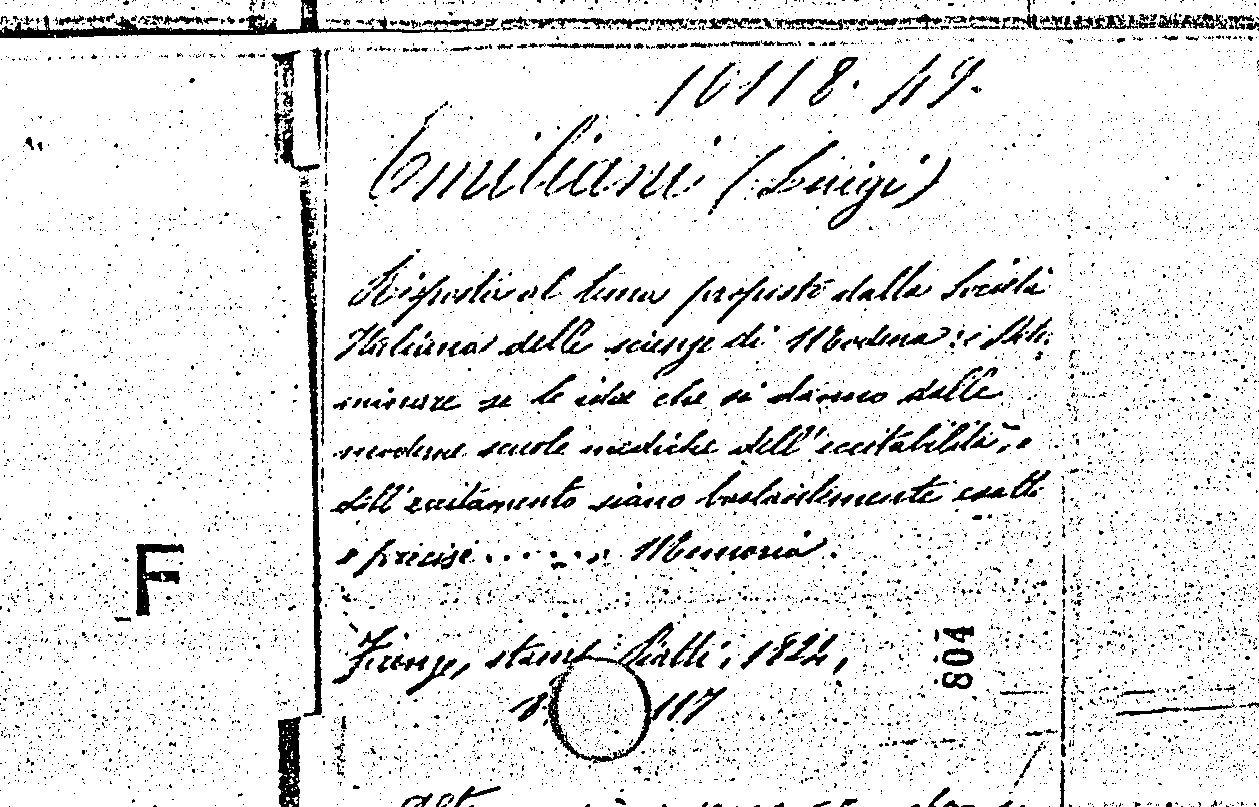 10118. 49.
Emiliani (Luigi)
Risposta al tema proposto dalla Società
Italiana delle scienze di Modena:
minare se le idee che si danno dalle
moderne scuole mediche dell'eccitabilità, e
dell'eccitamento siano bastantemente esatte
e precise....... Memoria.
F
Firenze, stamp. Piatti, 1822,
804
8. 117